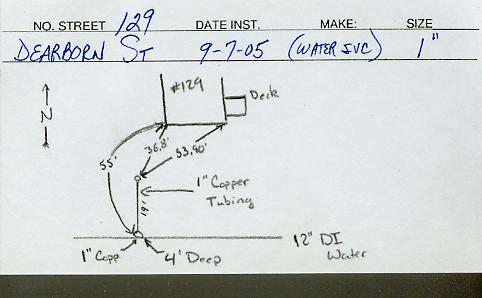 NO. STREET 129 DATE INST. MAKE: SIZE
DEARBORN ST 9-7-05 (WATER SVC) 1"
#129
Deck
N
36.8'
53.90'
55'
1" Copper
Tubing
19'
12" DI
Water
1" Copp
4' Deep